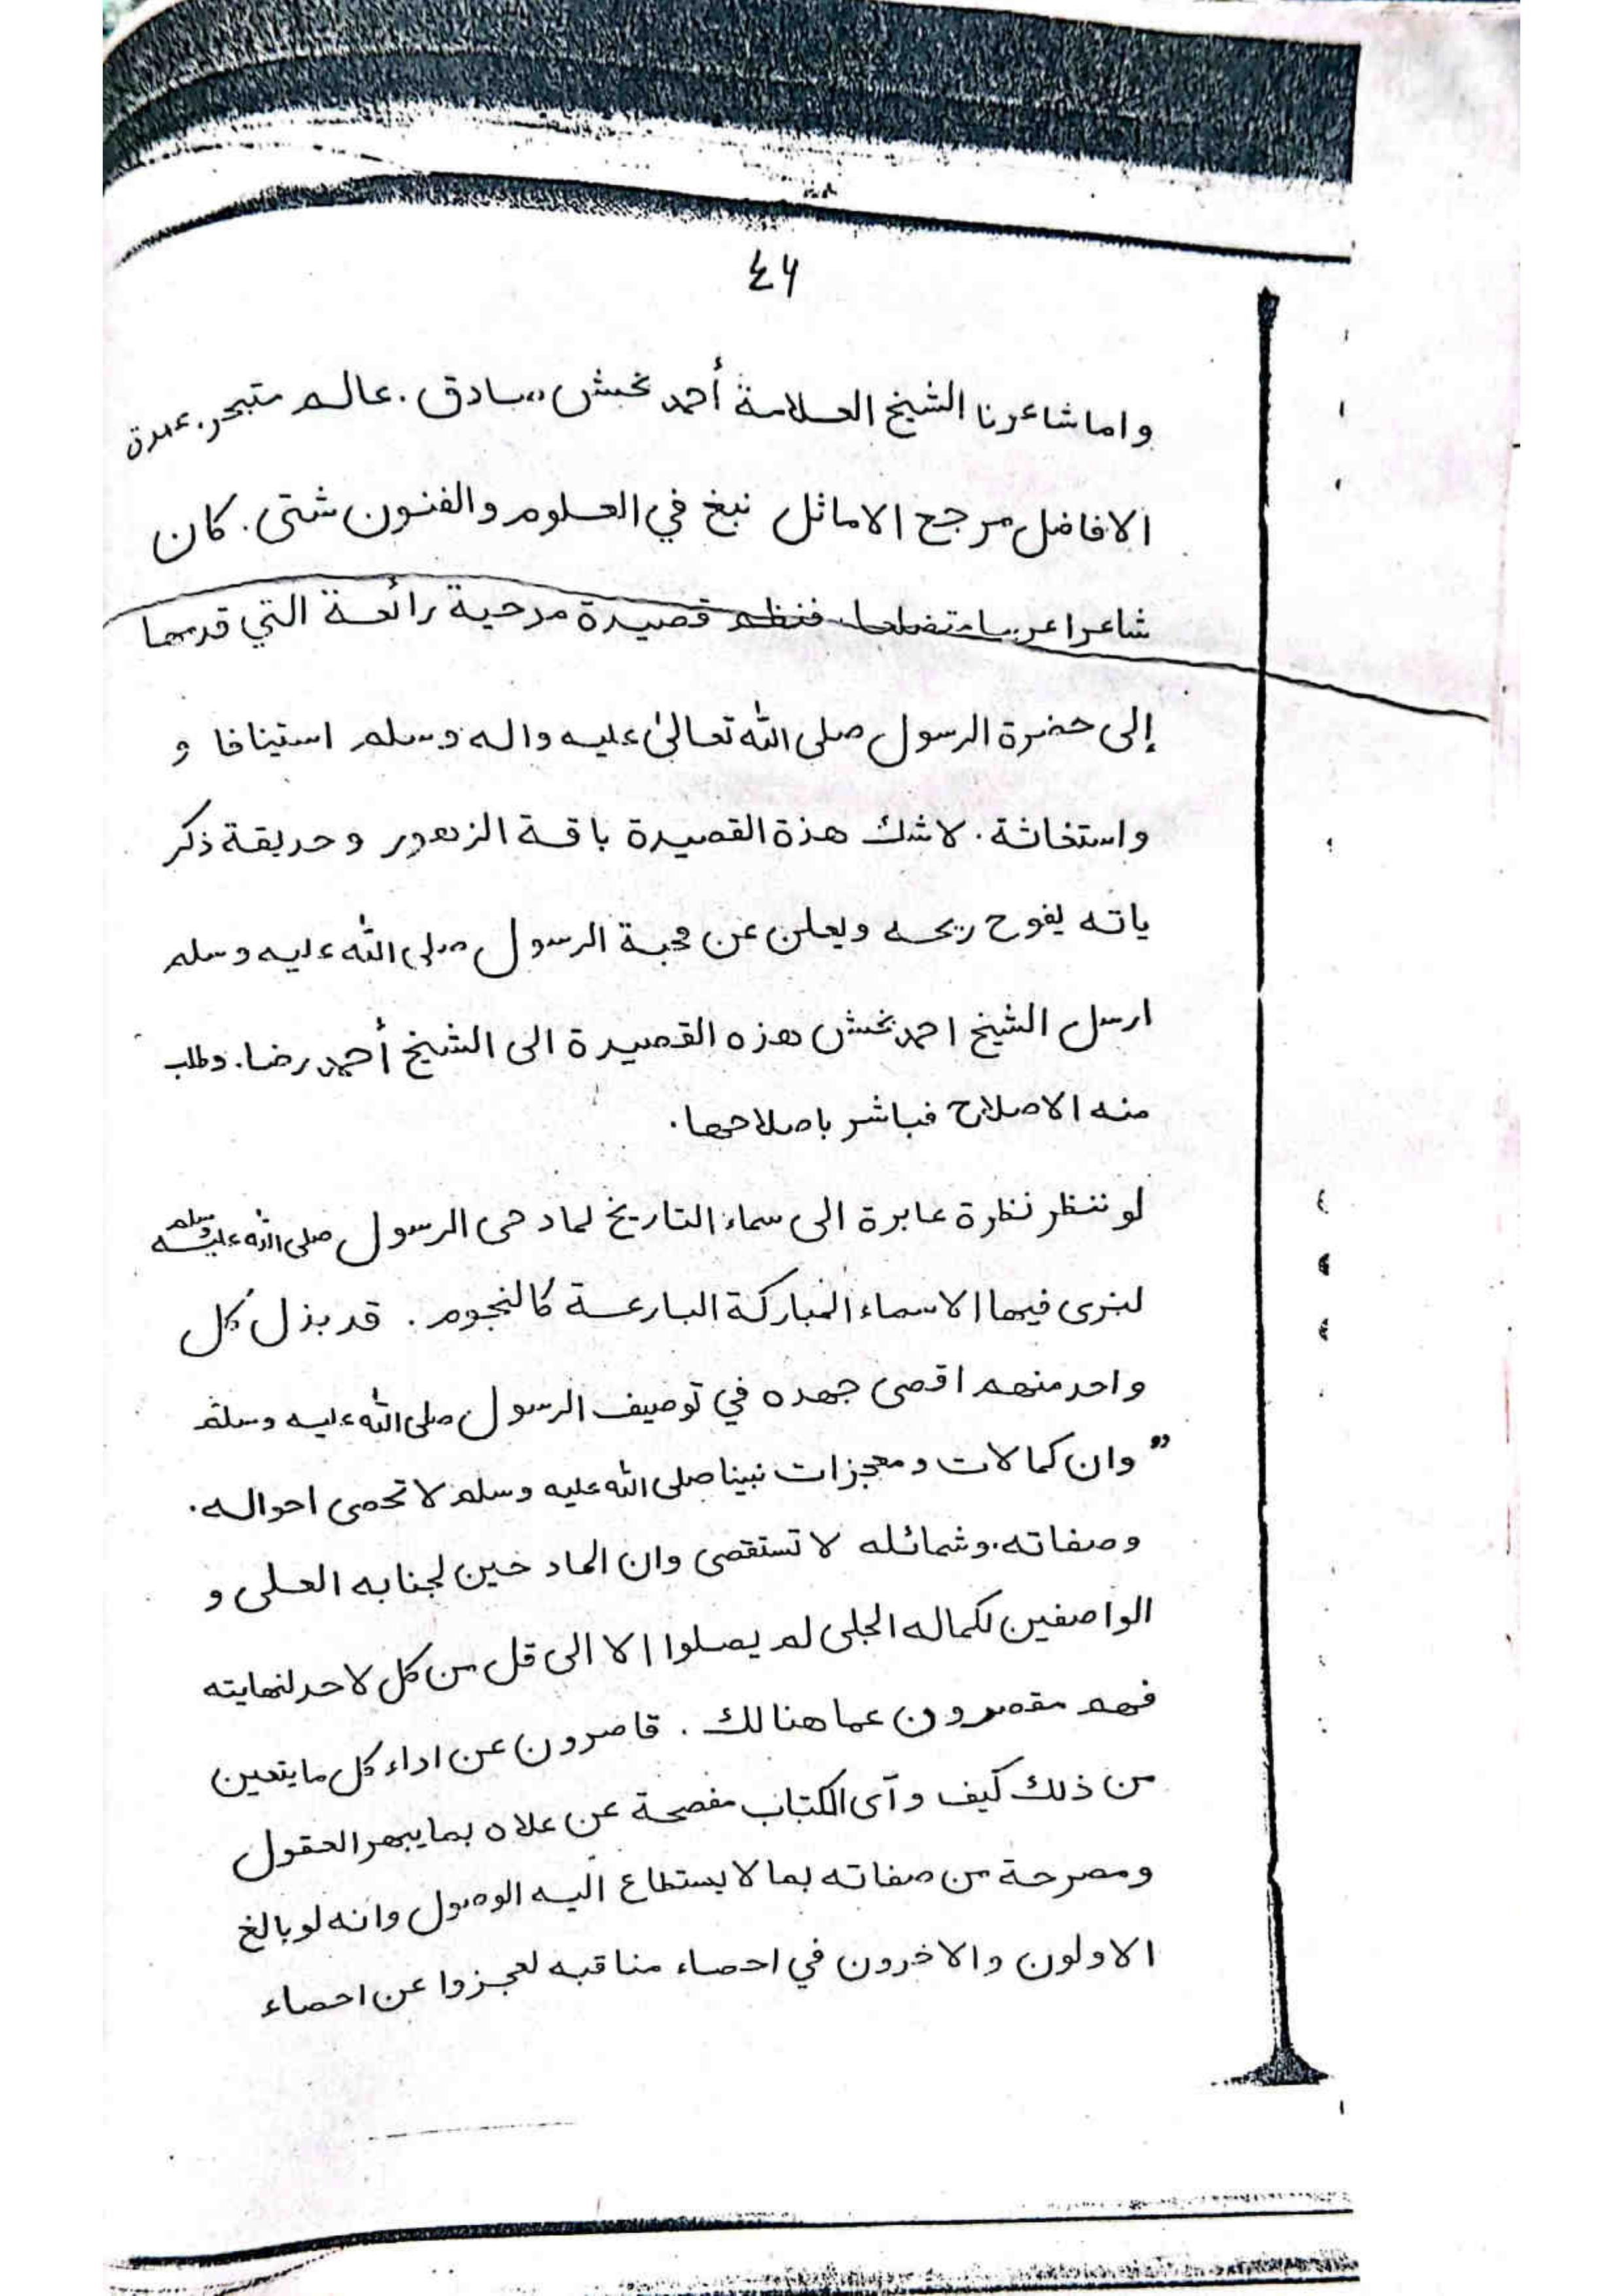 ٤٦
واما شاعرنا الشيخ العلامة أحمد بخش ،،صادق. عالم متبحر. عمدة
الافاضل مرجع الاماثل نبغ في العلوم والفنون شتى. كان
شاعرا عربيا متضلعا. فنظم قصيدة مدحية رائعة التي قدمها
إلى حضرة الرسول صلى الله تعالىٰ عليه واله وسلم استينافا و
واستغاثة. لاشك هذة القصيدة باقة الزهور و حديقة ذكر
ياته يفوح ريحه ويعلن عن محبة الرسول صلى الله عليه وسلم
ارسل الشيخ احمد بخش هذه القصيدة الى الشيخ أحمد رضا. وطلب
منه الاصلاح فباشر باصلاحها.
لو ننظر نظرة عابرة الى سماء التاريخ لمادحى الرسول صلى الله عليه وسلم
لنرى فيها الاسماء المباركة البارعة كالنجوم. قد بذل كل
واحد منهم اقصى جهده في توصيف الرسول صلى الله عليه وسلم
” وان كمالات ومعجزات نبينا صلى الله عليه وسلم لا تحصى احواله.
وصفاته. وشمائله لا تستقصى وان المادحين لجنابه العلى و
الواصفين لكماله الجلى لم يصلوا الا الى قل من كل لا حد لنهايته
فهم مقصرون عما هنالك. قاصرون عن اداء كل ما يتعين
من ذلك كيف و آى الكتاب مفصحة عن علاه بما يبهر العقول
ومصرحة من صفاته بما لا يستطاع اليه الوصول وانه لو بالغ
الاولون والاخرون في احصاء مناقبه لعجزوا عن احصاء